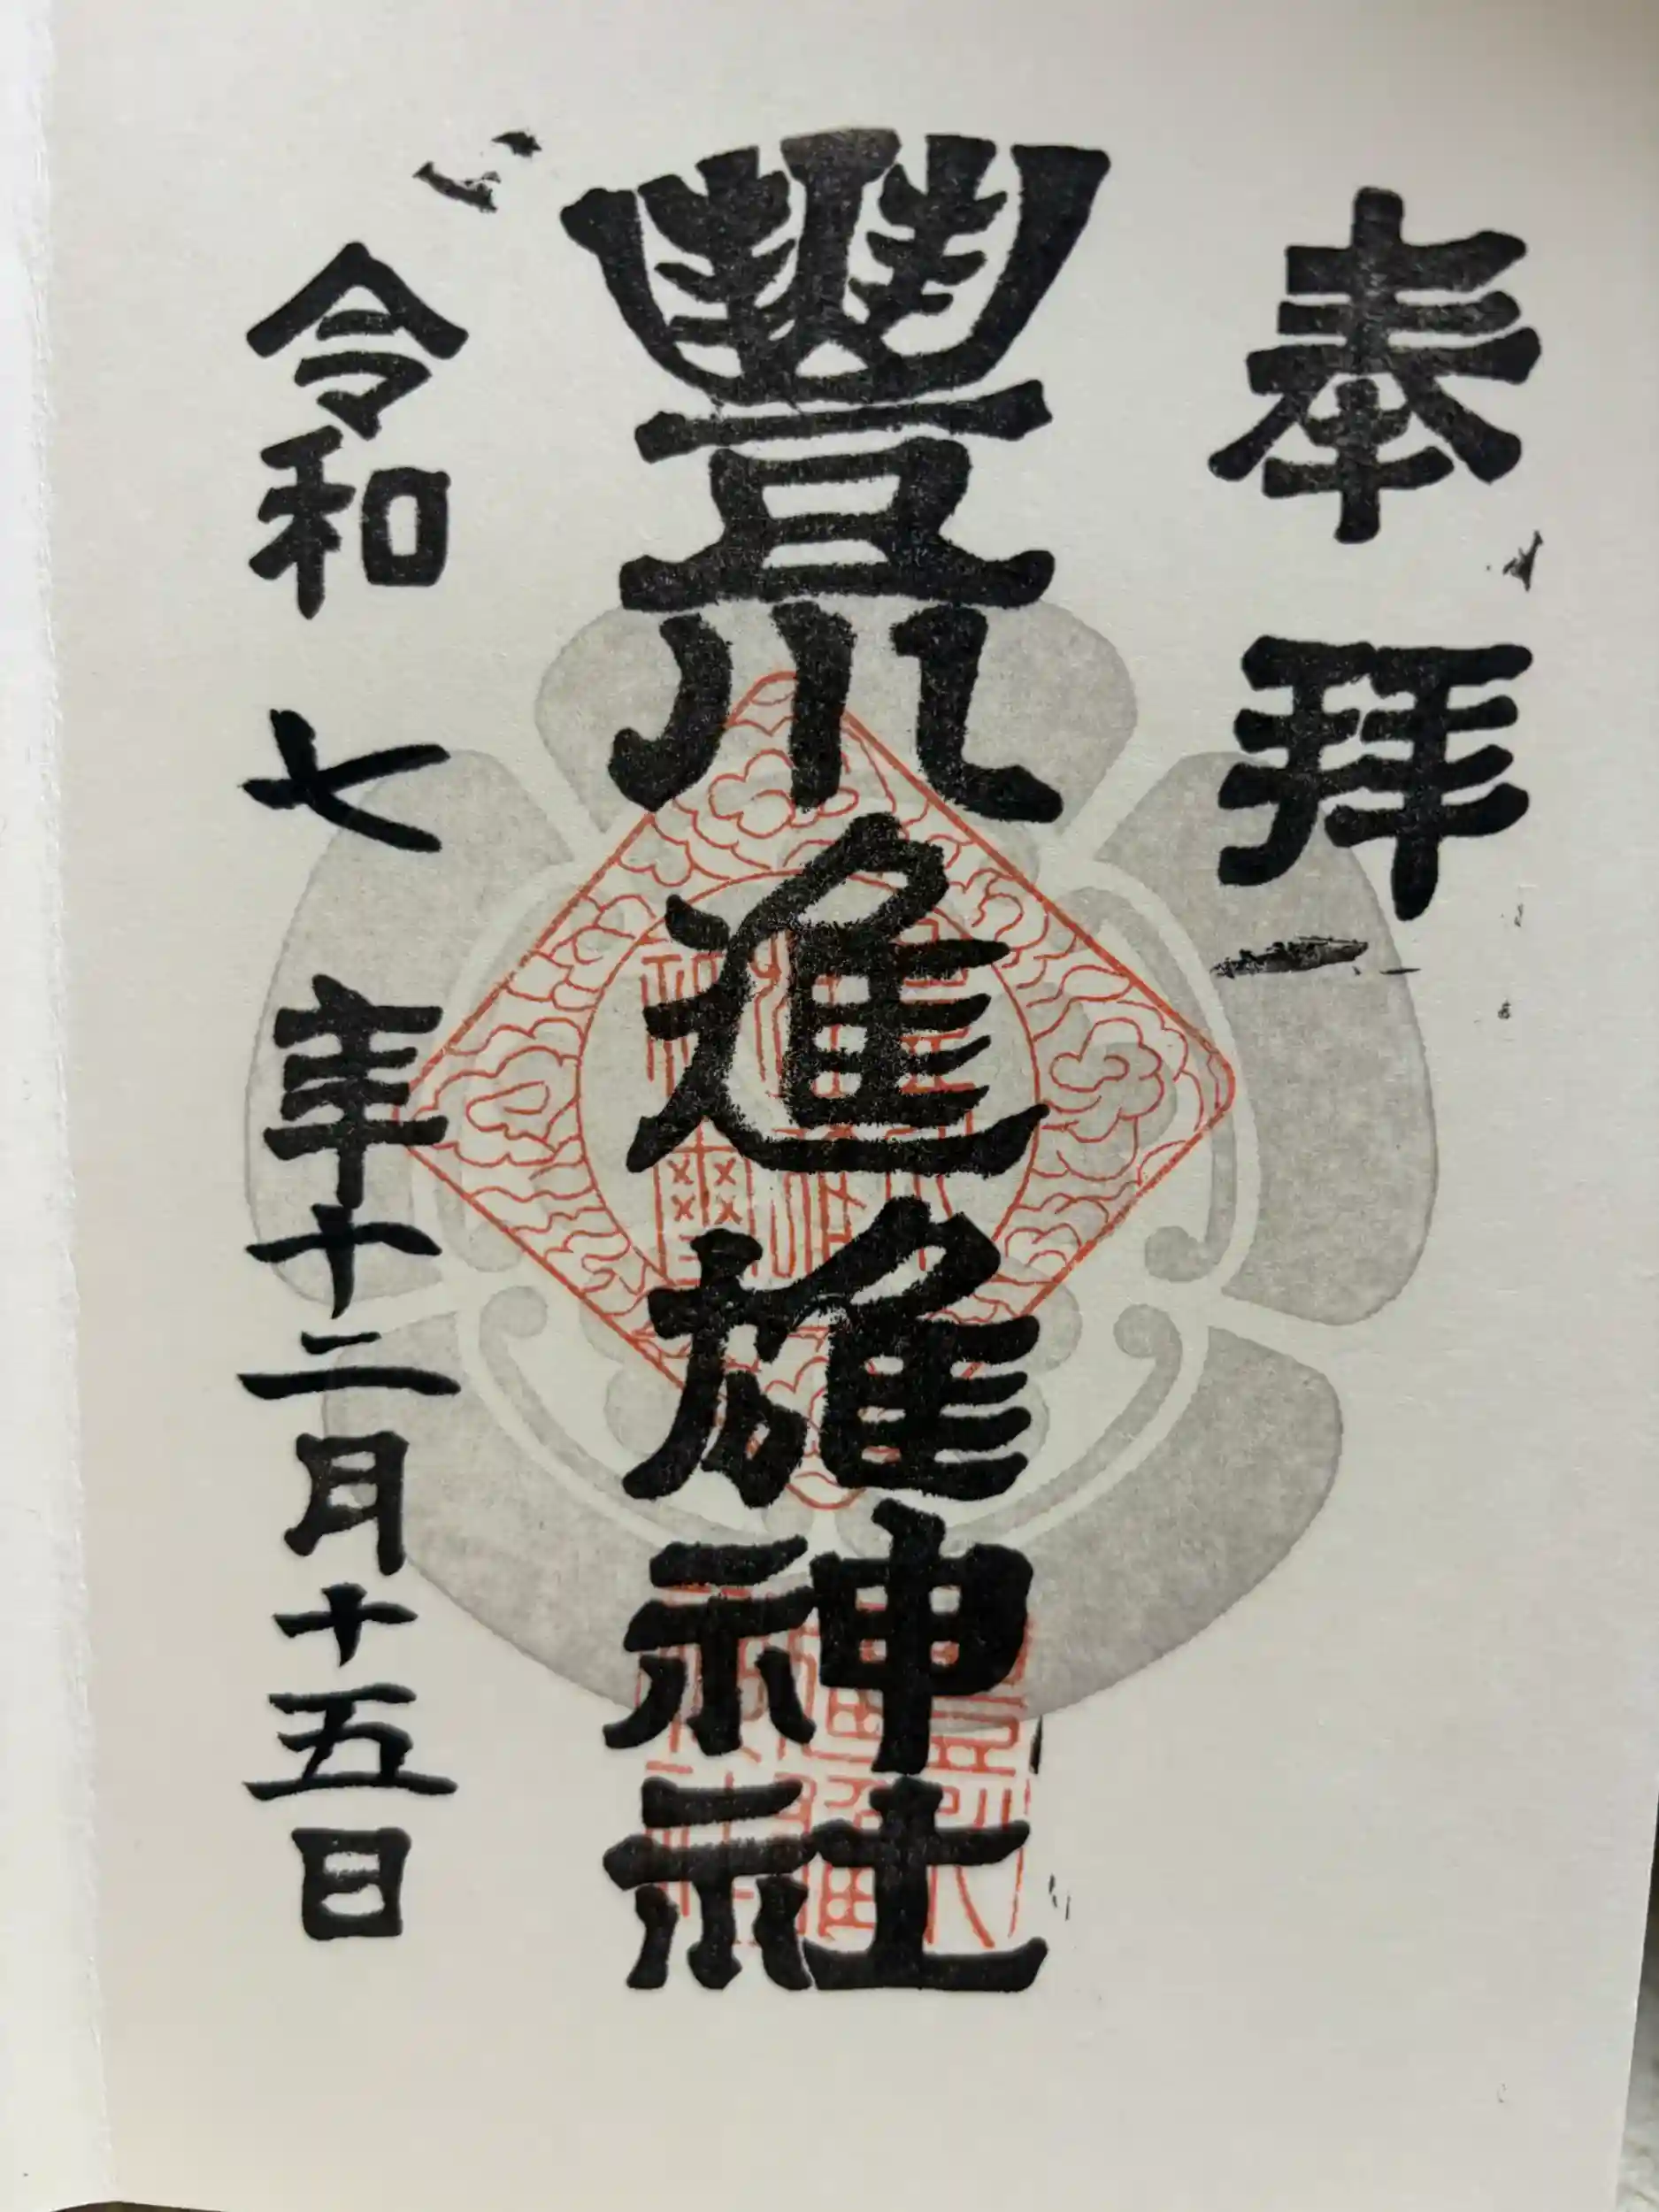 奉拜
豐川進雄神社
令和七年十二月十五日